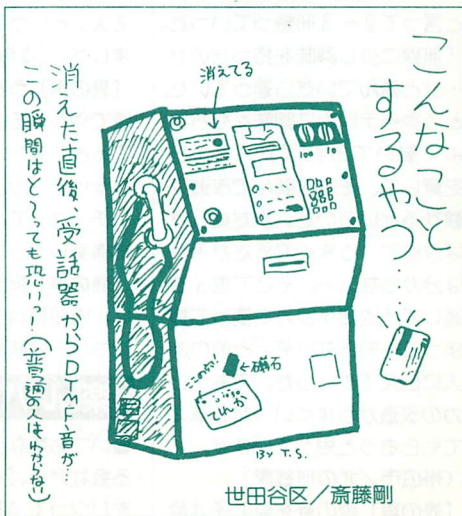 こんなこと
するやつ…
消えてる
100 10
消えた直後、受話器からDTMF音が
この瞬間はと〜っても恐いっ!(普通の人はわからない)
←磁石
てれか
By T.S.
世田谷区/斎藤剛